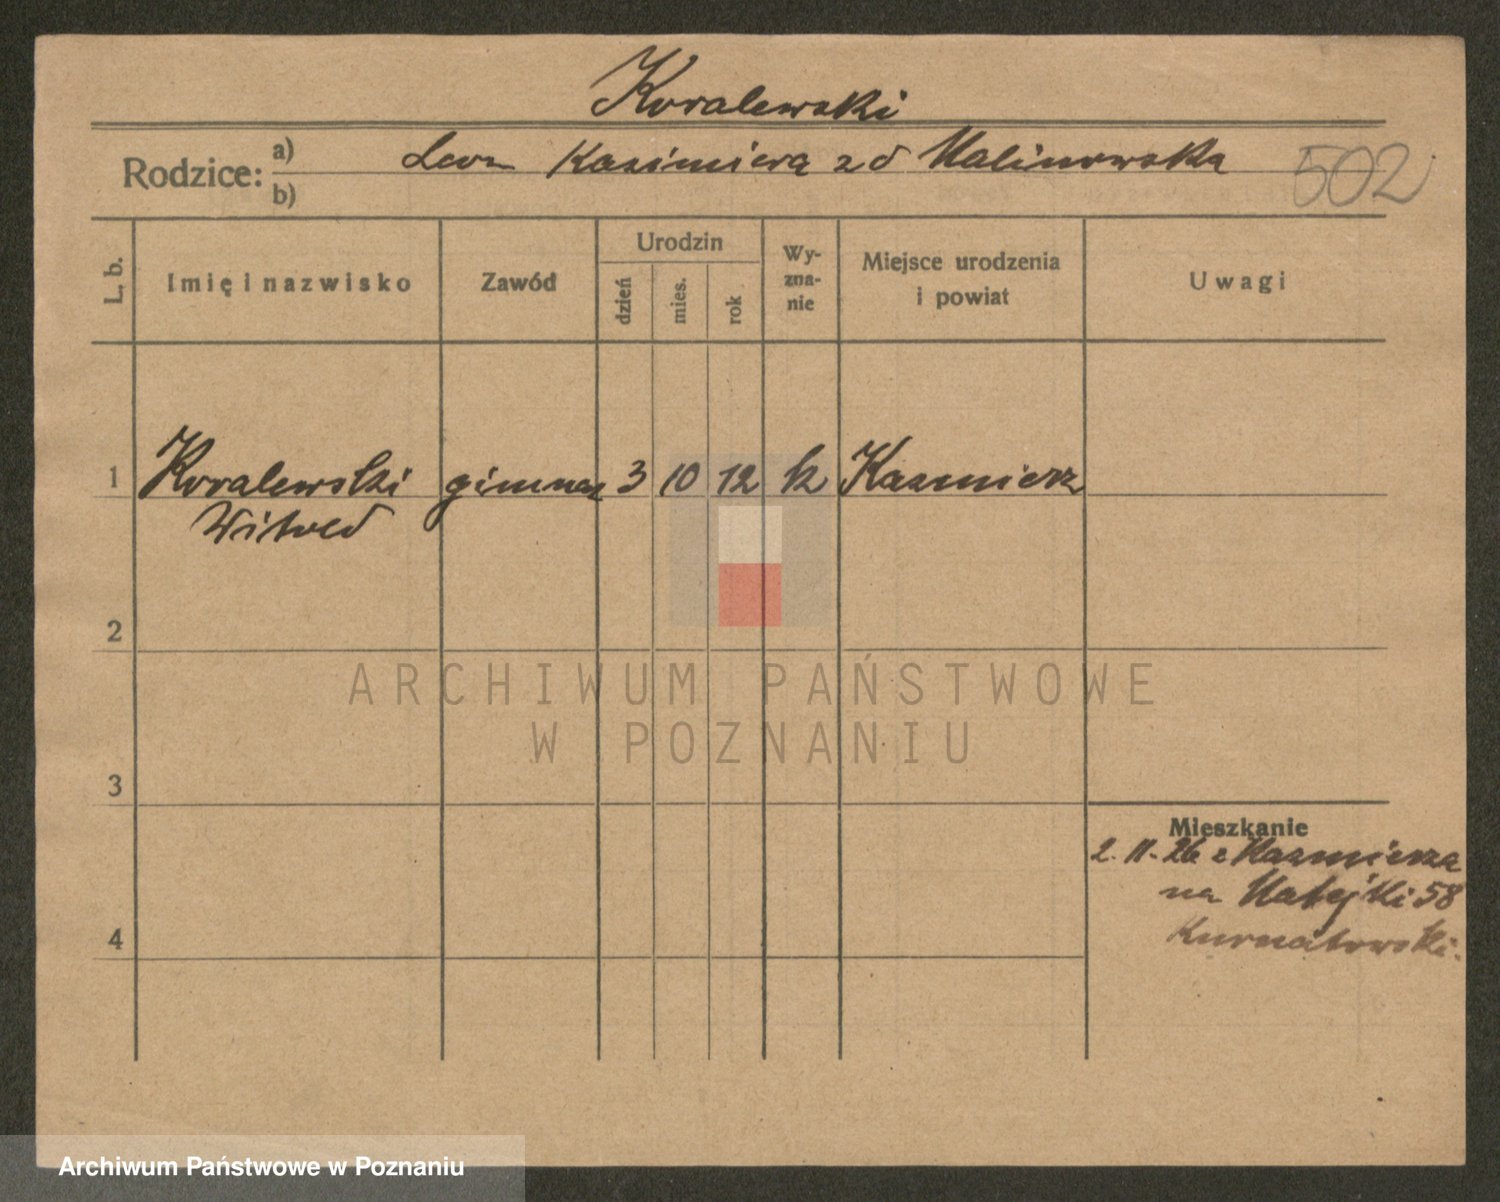 Koralewski
Rodzice: a) Leon Kazimiera z d Malinowska
b)
502
L. b. Imię i nazwisko Zawód Urodzin dzień mies. rok Wy-zna-nie Miejsce urodzenia i powiat Uwagi
1 Koralewski gimnaz 3 10 12 k Kazmierz
Witold
2
ARCHIWUM PAŃSTWOWE
W POZNANIU
3
Mieszkanie
2. 11. 26 z Kazmierza
na Matejki 58
Kurnatowski.
4
Archiwum Państwowe w Poznaniu